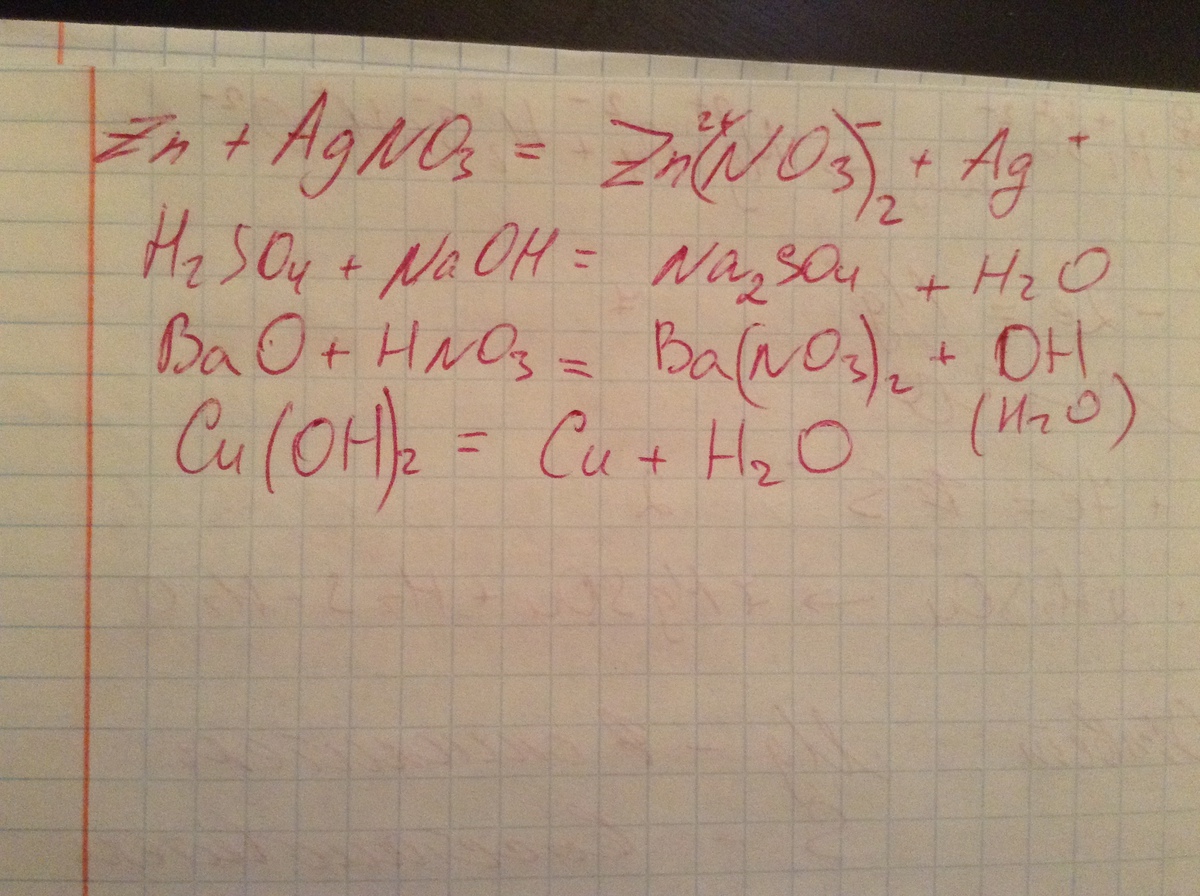 Zn + AgNO₃ = Zn²⁺(NO₃)₂⁻ + Ag⁺
H₂SO₄ + NaOH = Na₂SO₄ + H₂O
BaO + HNO₃ = Ba(NO₃)₂ + OH
(H₂O)
Cu(OH)₂ = Cu + H₂O